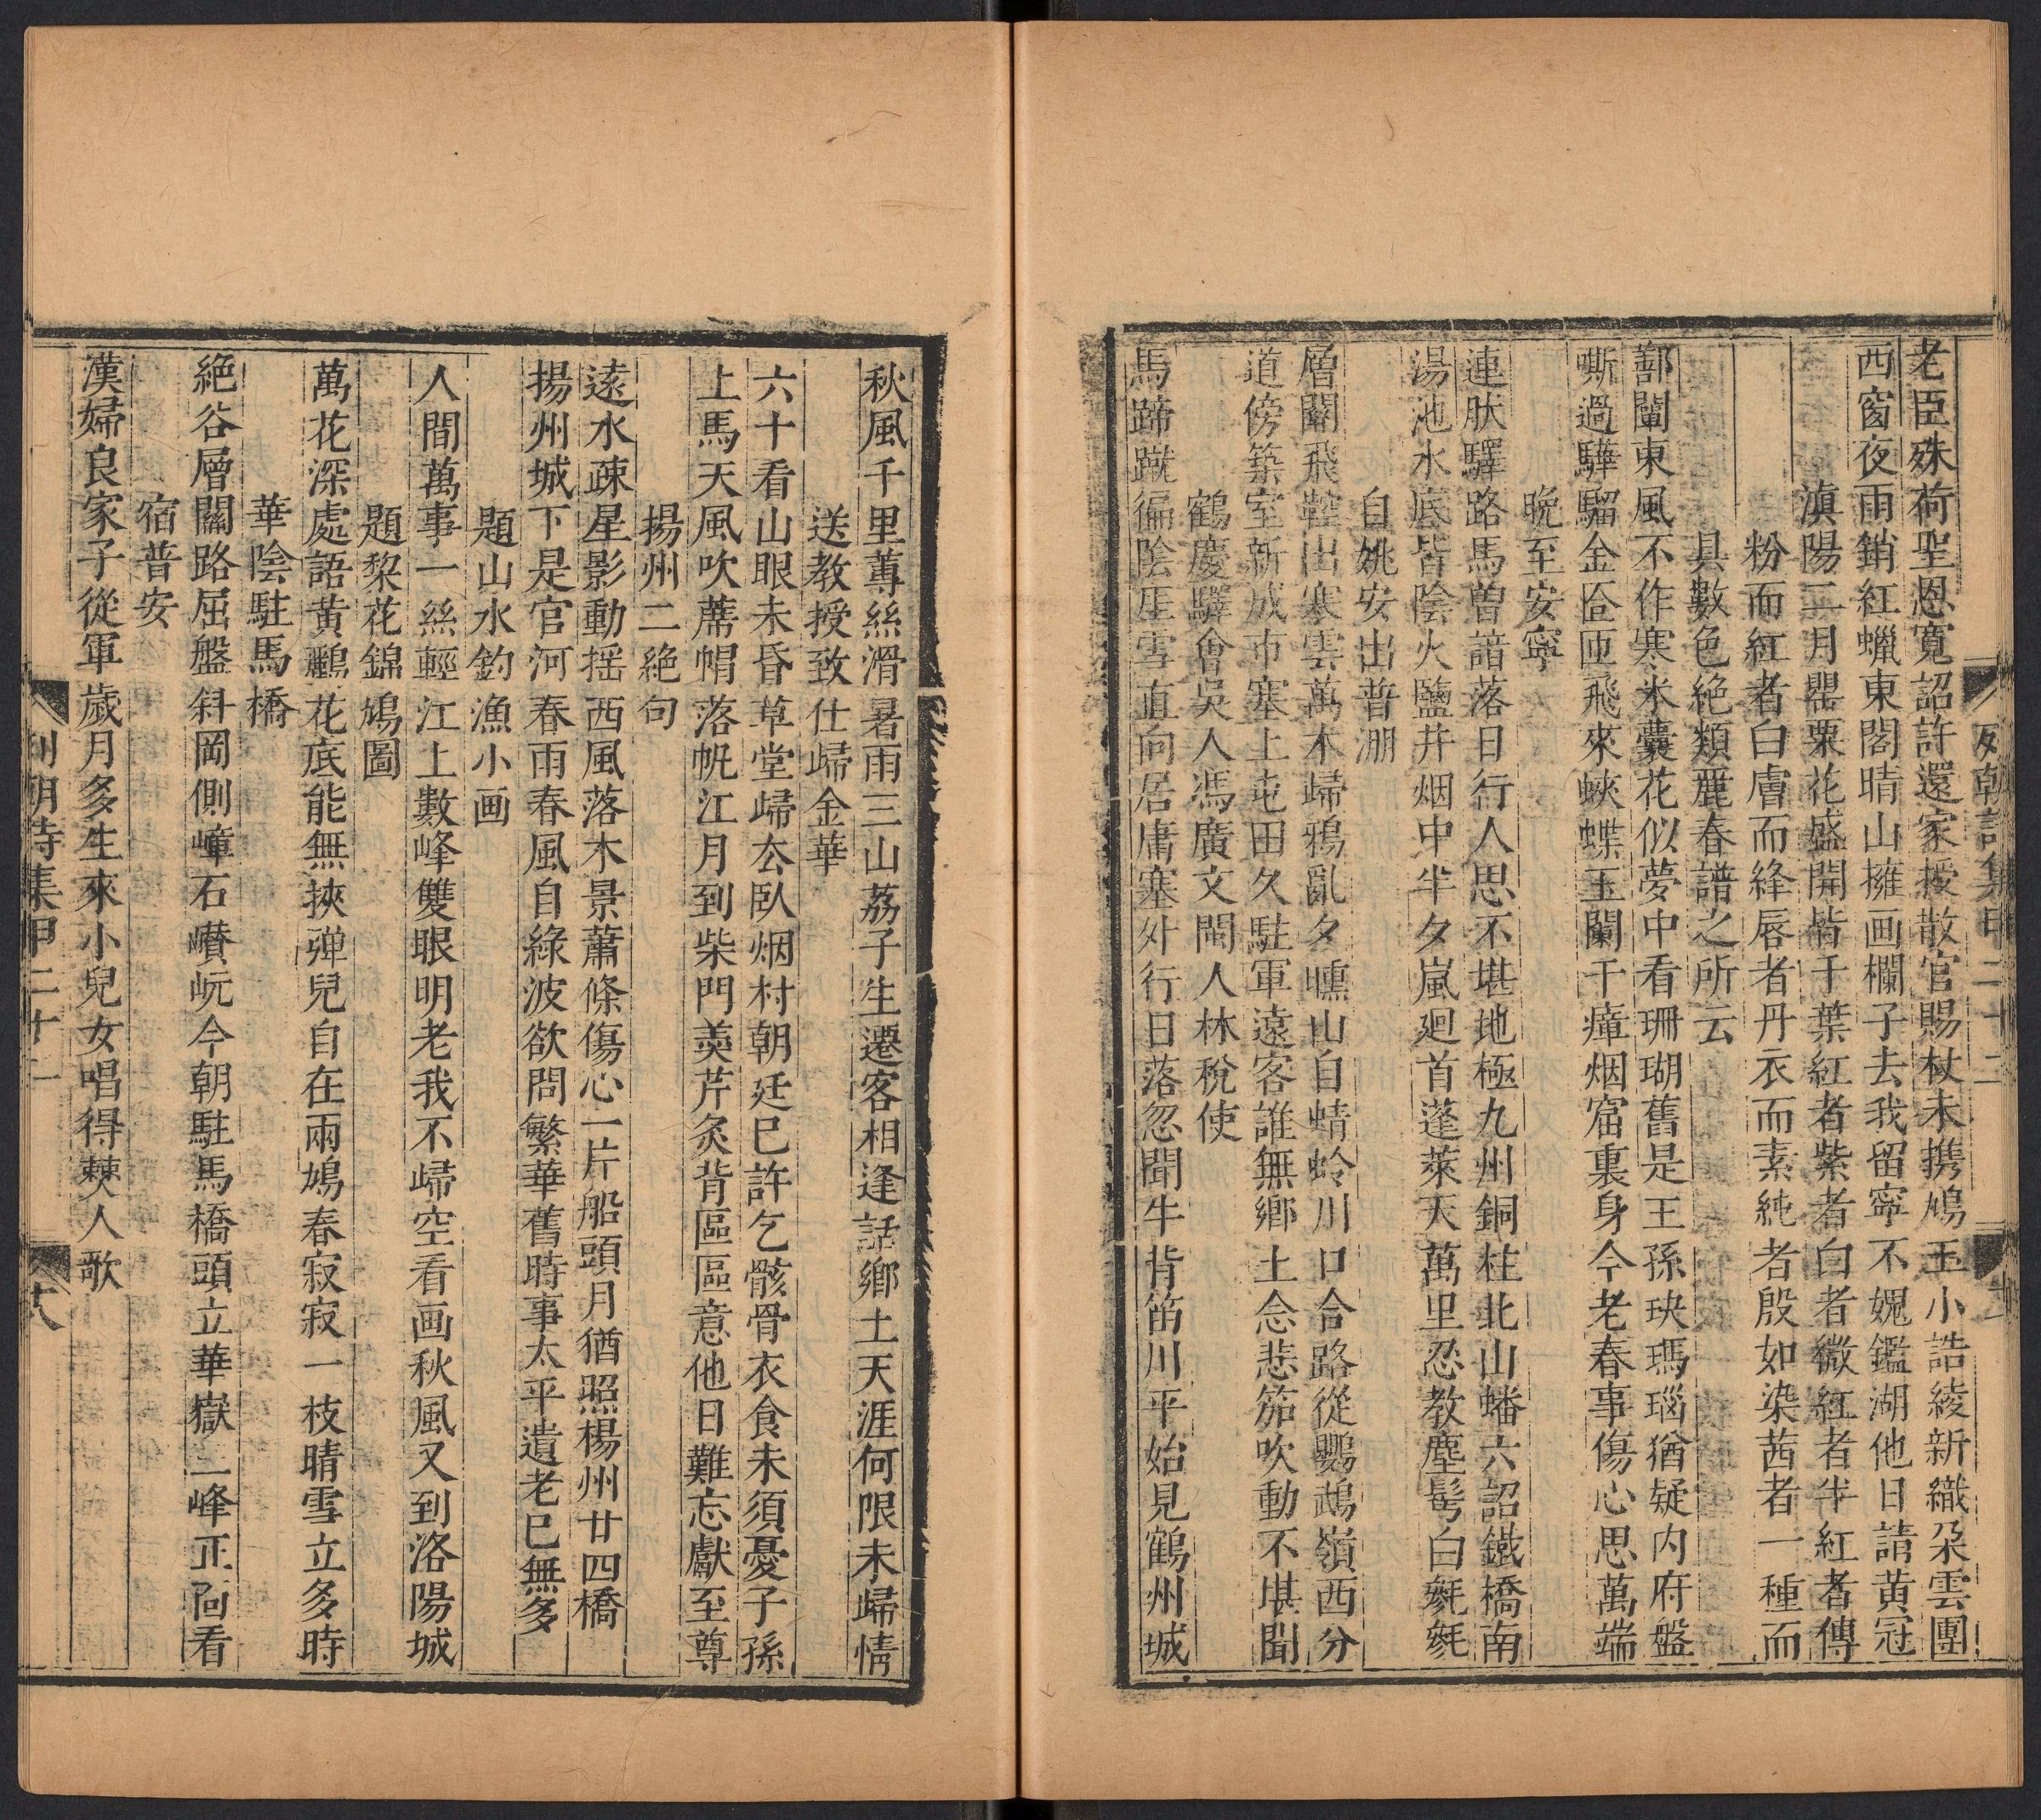 列朝詩集甲二十二
老臣殊荷聖恩寬詔許還家授散官賜杖未携鳩玉小誥綾新織朶雲團
西窗夜雨銷紅蠟東閣晴山擁画欄子去我留寧不媿鑑湖他日請黄冠
滇陽二月罌粟花盛開皆千葉紅者紫者白者微紅者半紅者傅
粉而紅者白膚而絳唇者丹衣而素純者殷如染茜者一種而
具數色絶類麗春譜之所云
鄯闡東風不作寒米囊花似夢中看珊瑚舊是王孫玦瑪瑙猶疑内府盤
嘶過驊騮金匼匝飛來蛺蝶玉闌干瘴烟窟裏身今老春事傷心思萬端
晩至安寧
連肰驛路馬曾諳落日行人思不堪地極九州銅柱北山蟠六詔鐵橋南
湯池水底皆陰火鹽井烟中半夕嵐廻首蓬萊天萬里忍教塵髩白毿毿
自姚安出普淜
層關飛鞚出寒雲萬木歸鴉亂夕曛山自蜻蛉川口合路從鸚鵡嶺西分
道傍築室新成市塞上屯田久駐軍遠客誰無鄉土念悲笳吹動不堪聞
鶴慶驛會吳人馮廣文閩人林稅使
馬蹄蹴徧陰厓雪直向居庸塞外行日落忽聞牛背笛川平始見鶴州城
秋風千里蓴絲滑暑雨三山荔子生遷客相逢話鄉土天涯何限未歸情
送教授致仕歸金華
六十看山眼未昏草堂歸去臥烟村朝廷已許乞骸骨衣食未須憂子孫
上馬天風吹蓆帽落帆江月到柴門羮芹炙背區區意他日難忘獻至尊
揚州二絶句
遠水疎星影動揺西風落木景蕭條傷心一片船頭月猶照楊州廿四橋
揚州城下是官河春雨春風自綠波欲問繁華舊時事太平遺老已無多
題山水釣漁小画
人間萬事一絲輕江上數峰雙眼明老我不歸空看画秋風又到洛陽城
題棃花錦鳩圖
萬花深處語黄鸝花底能無挾彈兒自在兩鳩春寂寂一枝晴雪立多時
華陰駐馬橋
絶谷層關路屈盤斜岡側嶂石巑岏今朝駐馬橋頭立華嶽三峰正面看
宿普安
漢婦良家子從軍歲月多生來小兒女唱得僰人歌
列朝詩集甲二十二
十八